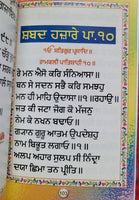 ਸ਼ਬਦ ਹਜ਼ਾਰੇ ਪਾ.੧੦
ੴ ਸਤਿਗੁਰ ਪ੍ਰਸਾਦਿ
ਰਾਮਕਲੀ ਪਾਤਿਸ਼ਾਹੀ ੧੦
ਰੇ ਮਨ ਐਸੋ ਕਰਿ ਸੰਨਿਆਸਾ
ਬਨ ਸੇ ਸਦਨ ਸਭੈ ਕਰਿ ਸਮਝਹੁ
ਮਨ ਹੀ ਮਾਹਿ ਉਦਾਸਾ ॥੧॥ਰਹਾਉ॥
ਜਤ ਕੀ ਜਟਾ ਜੋਗ ਕੋ ਮੱਜਨੁ
ਨੇਮ ਕੇ ਨਖੁਨ ਬਢਾਓ
ਗਯਾਨ ਗੁਰੂ ਆਤਮ ਉਪਦੇਸ਼ਹੁ
ਨਾਮ ਬਿਭੂਤ ਲਗਾਓ ॥੧॥
ਅਲਪ ਅਹਾਰ ਸੁਲਪ ਸੀ ਨਿੰਦ੍ਰਾ
ਦਯਾ ਛਿਮਾ ਤਨ ਪ੍ਰੀਤਿ ॥